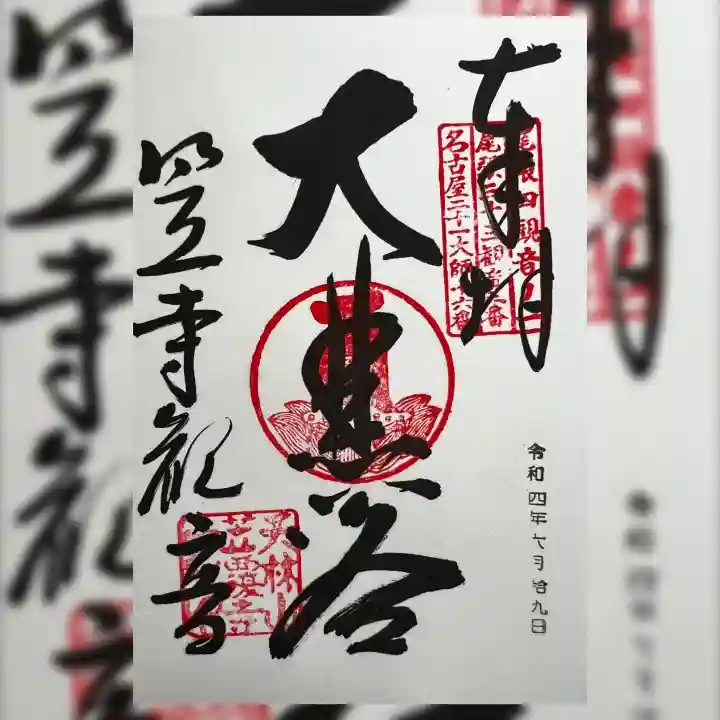 奉拝
尾張四観音
尾張三十三観音
名古屋二十一大師十六番
令和四年
月拾九日
大
笠寺観音
天林山
笠覆寺